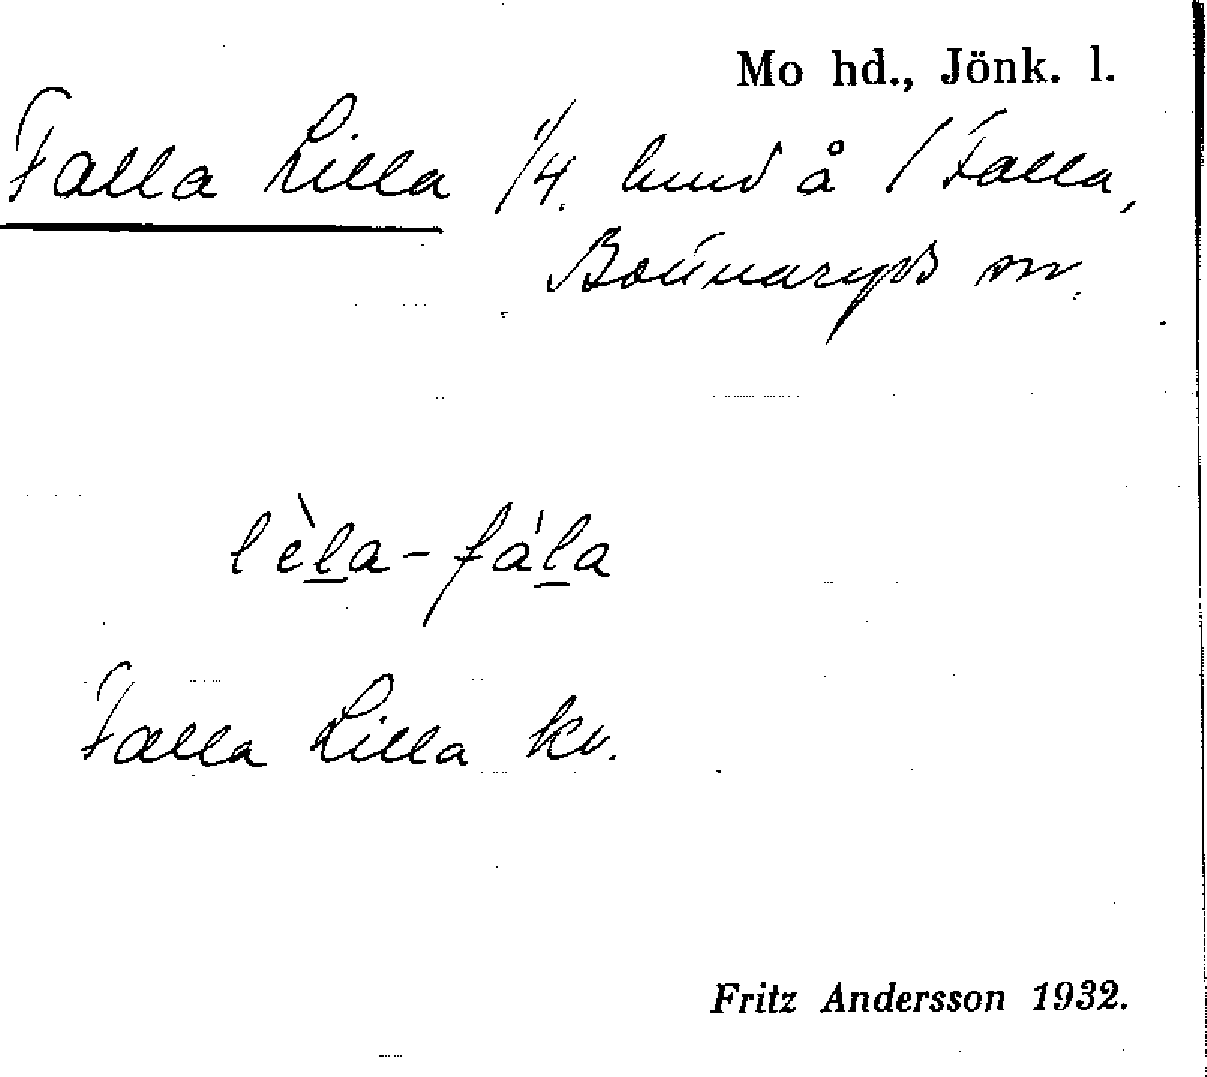 Mo hd., Jönk. l.
Falla Lilla 1/4. hmd å 1 Falla,
Bonnaryds sn.
lèla-fála
Falla Lilla kv.
Fritz Andersson 1932.